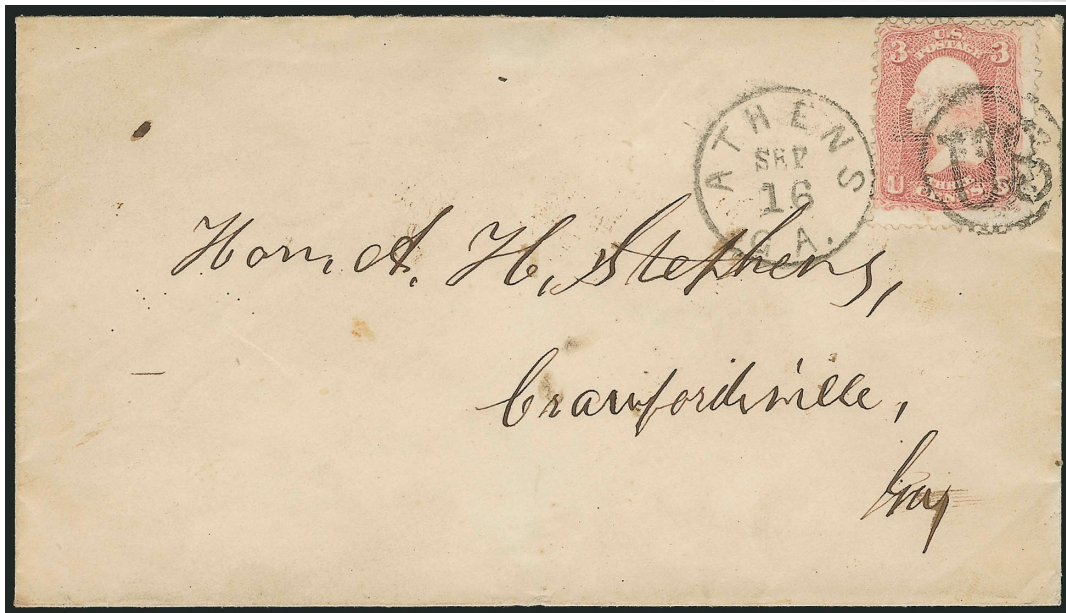 3 U.S. POSTAGE 3
U CENTS S
ATHENS
SEP
16
GA.
Hon. A. H. Stephens,
Crawfordsville,
Ga